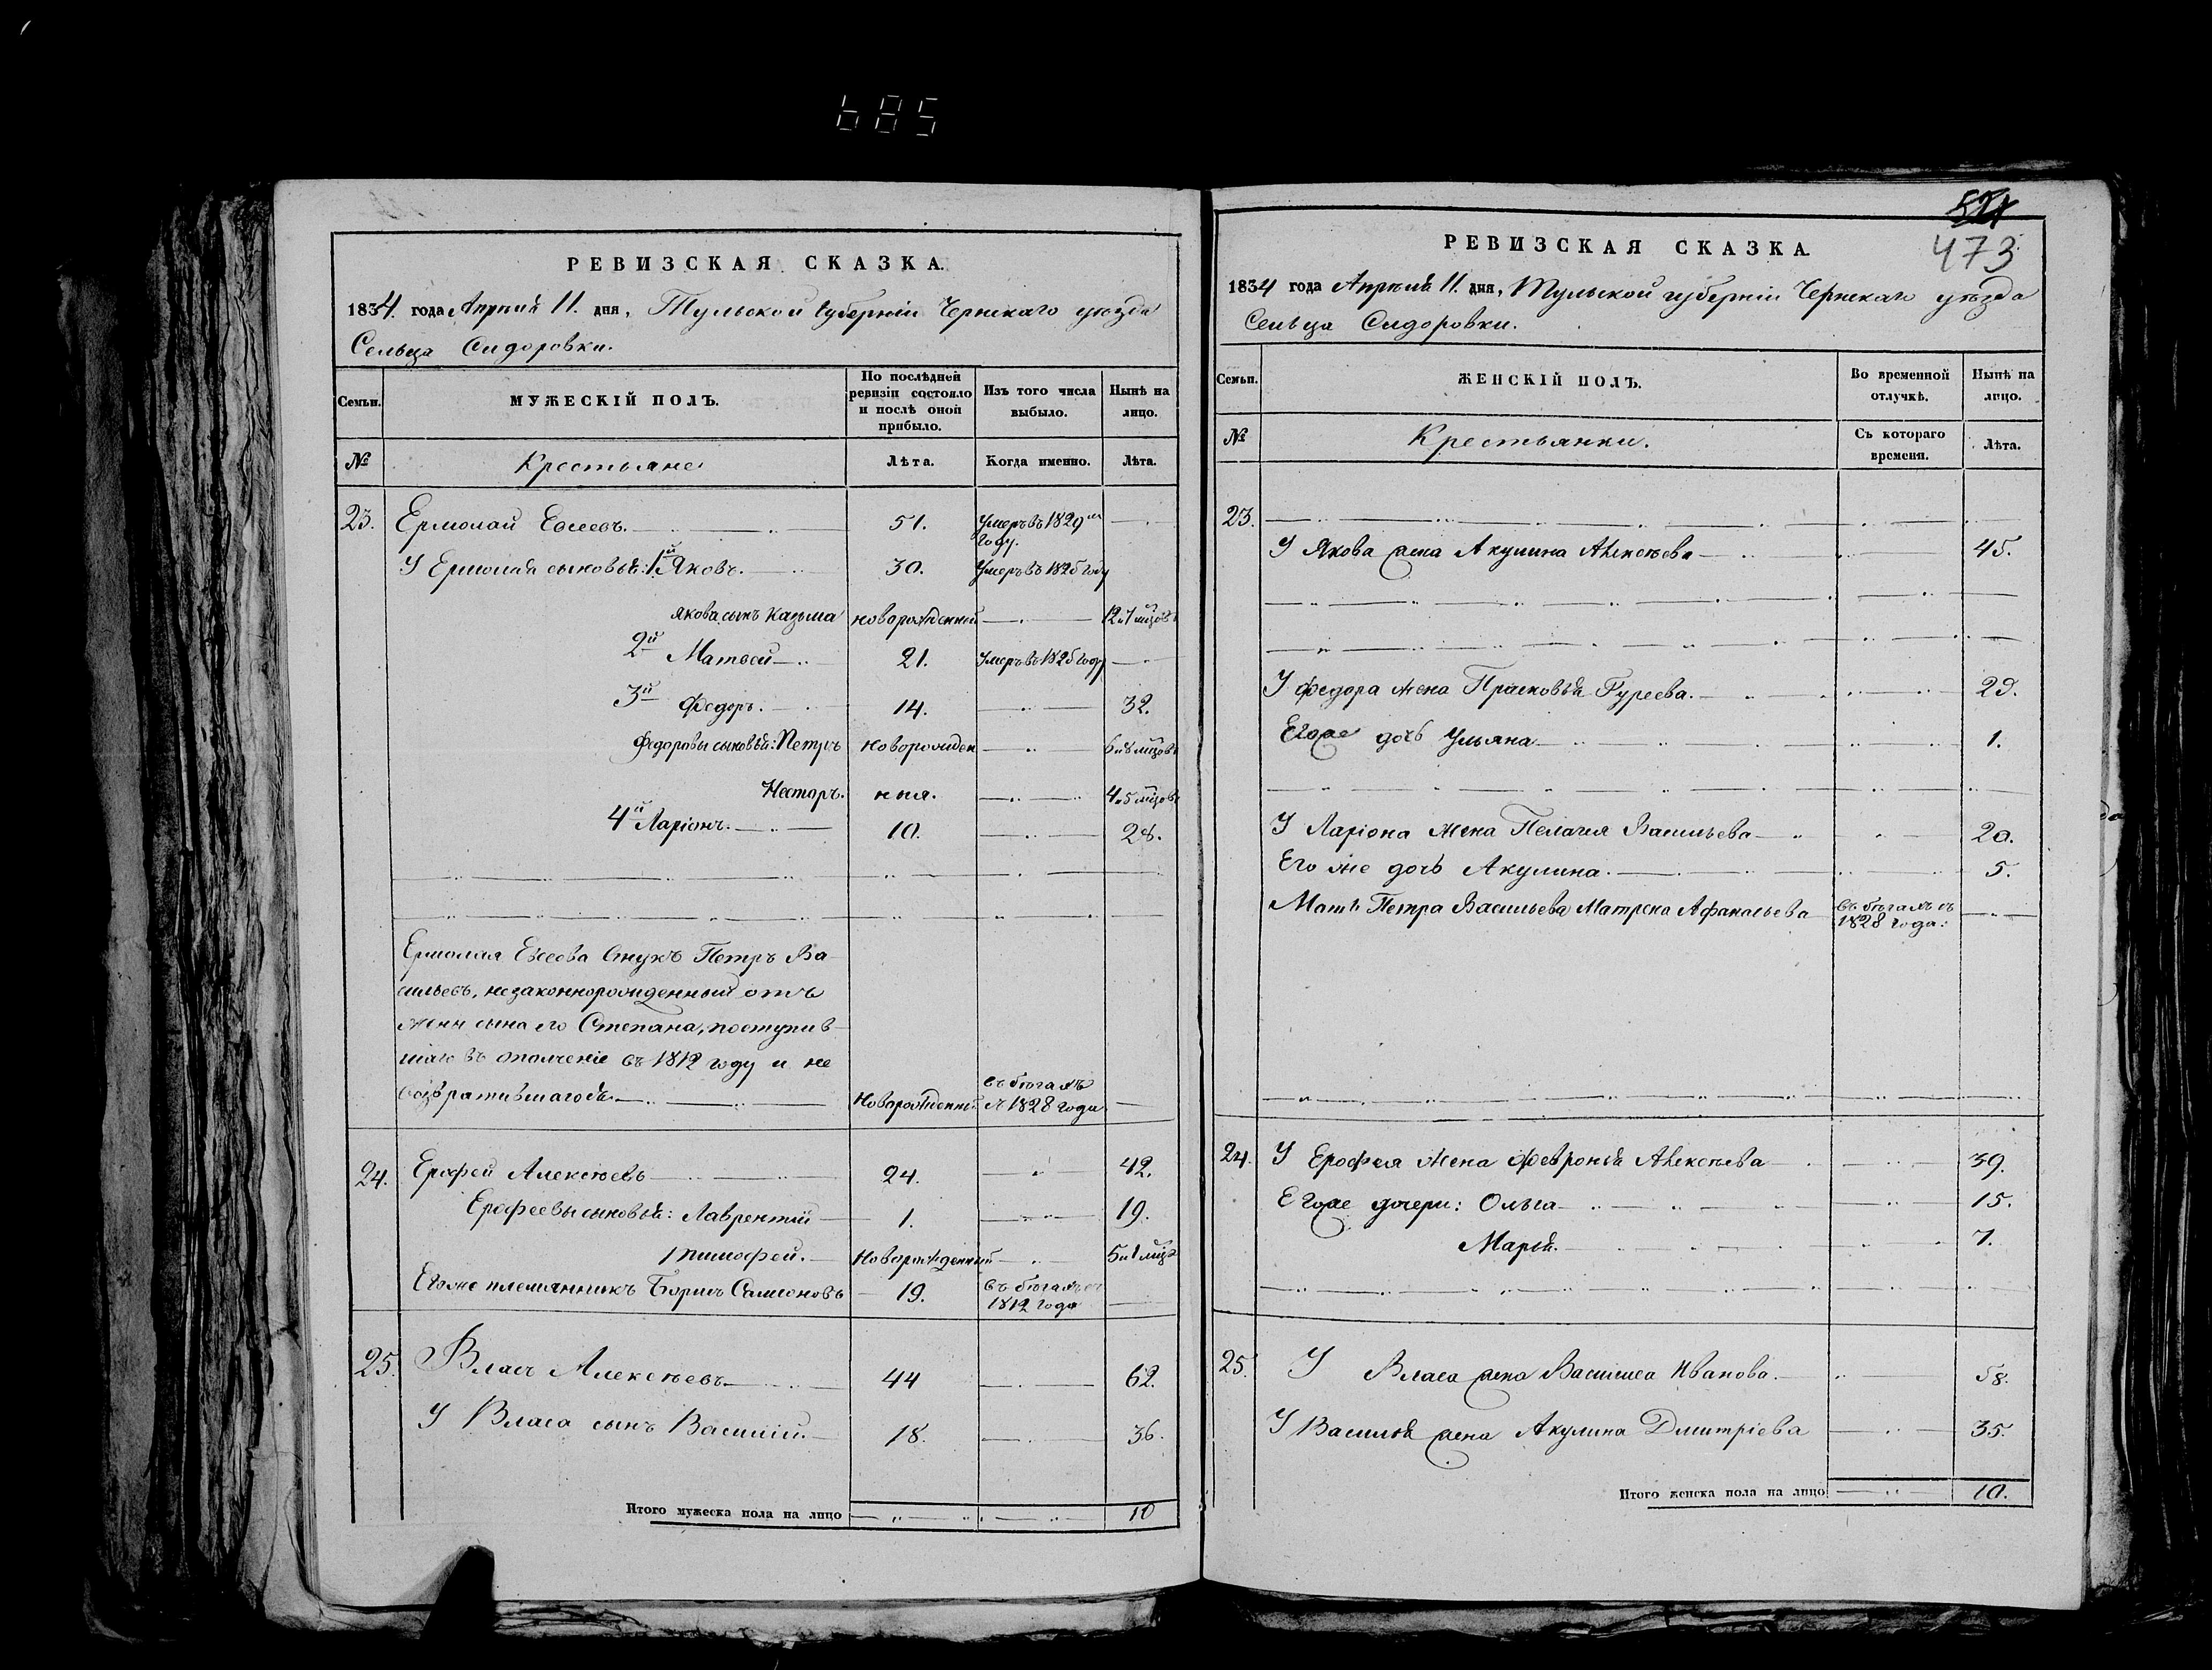 685
РЕВИЗСКАЯ СКАЗКА.
1834. года Апрѣля 11. дня, Тульской Губерніи Чернскаго уѣзда
Сельца Сидоровки.
Семьи.
МУЖЕСКІЙ ПОЛЪ.
По послѣдней ревизіи состояло и послѣ оной прибыло.
Изъ того числа выбыло.
Нынѣ на лицо.
№
Крестьяне
Лѣта.
Когда именно.
Лѣта.
23. Ермолай Евсеевъ. 51. Умеръ въ 1829м году.
У Ермолая сыновья: 1й Яковъ. 30. Умеръ въ 1825 году
Якова сынъ Казьма новорожденный 12 и 7 мцовъ
2й Матвей 21. Умеръ въ 1825 году
3й Федоръ. 14. 32.
Федоровы сыновья: Петръ новорожден 6 и 8 мцовъ
Несторъ. ныя. 4 и 5 мцовъ
4й Ларіонъ. 10. 28.
Ермолая Евсеева внукъ Петръ Ва-
сильевъ, незаконнорожденный отъ
жены сына его Степана, поступив-
шаго въ ополченіе въ 1812 году и не
возвратившагося Новорожденный въ бѣгахъ съ 1828 года
24. Ерофей Алексѣевъ 24. 42.
Ерофеевы сыновья: Лаврентій 1. 19.
Тимофей. Новорожденный 5 и 1 мцъ
Егоже племянникъ Борисъ Самсоновъ 19. въ бѣгахъ съ 1812 года
25. Власъ Алексѣевъ 44 62.
У Власа сынъ Василий. 18. 36.
Итого мужеска пола на лицо 10
473
РЕВИЗСКАЯ СКАЗКА.
1834 года Апрѣля 11. дня, Тульской губерніи Чернскаго уѣзда
Сельца Сидоровки.
Семьи.
ЖЕНСКІЙ ПОЛЪ.
Во временной отлучкѣ.
Нынѣ на лицо.
№
Крестьянки.
Съ котораго времени.
Лѣта.
23.
У Якова жена Акулина Алексѣева 45.
У Федора жена Прасковья Гуреева. 29.
Егоже дочь Ульяна 1.
У Ларіона жена Пелагея Васильева 20.
Его же дочь Акулина. 5.
Мать Петра Васильева Матрена Афанасьева въ бѣгахъ съ 1828 года.
24. У Ерофея жена Февронья Алексѣева 39.
Егоже дочери: Ольга 15.
Марья. 7.
25. У Власа жена Василиса Иванова. 58.
У Василья жена Акулина Дмитріева 35.
Итого женска пола на лицо 10.